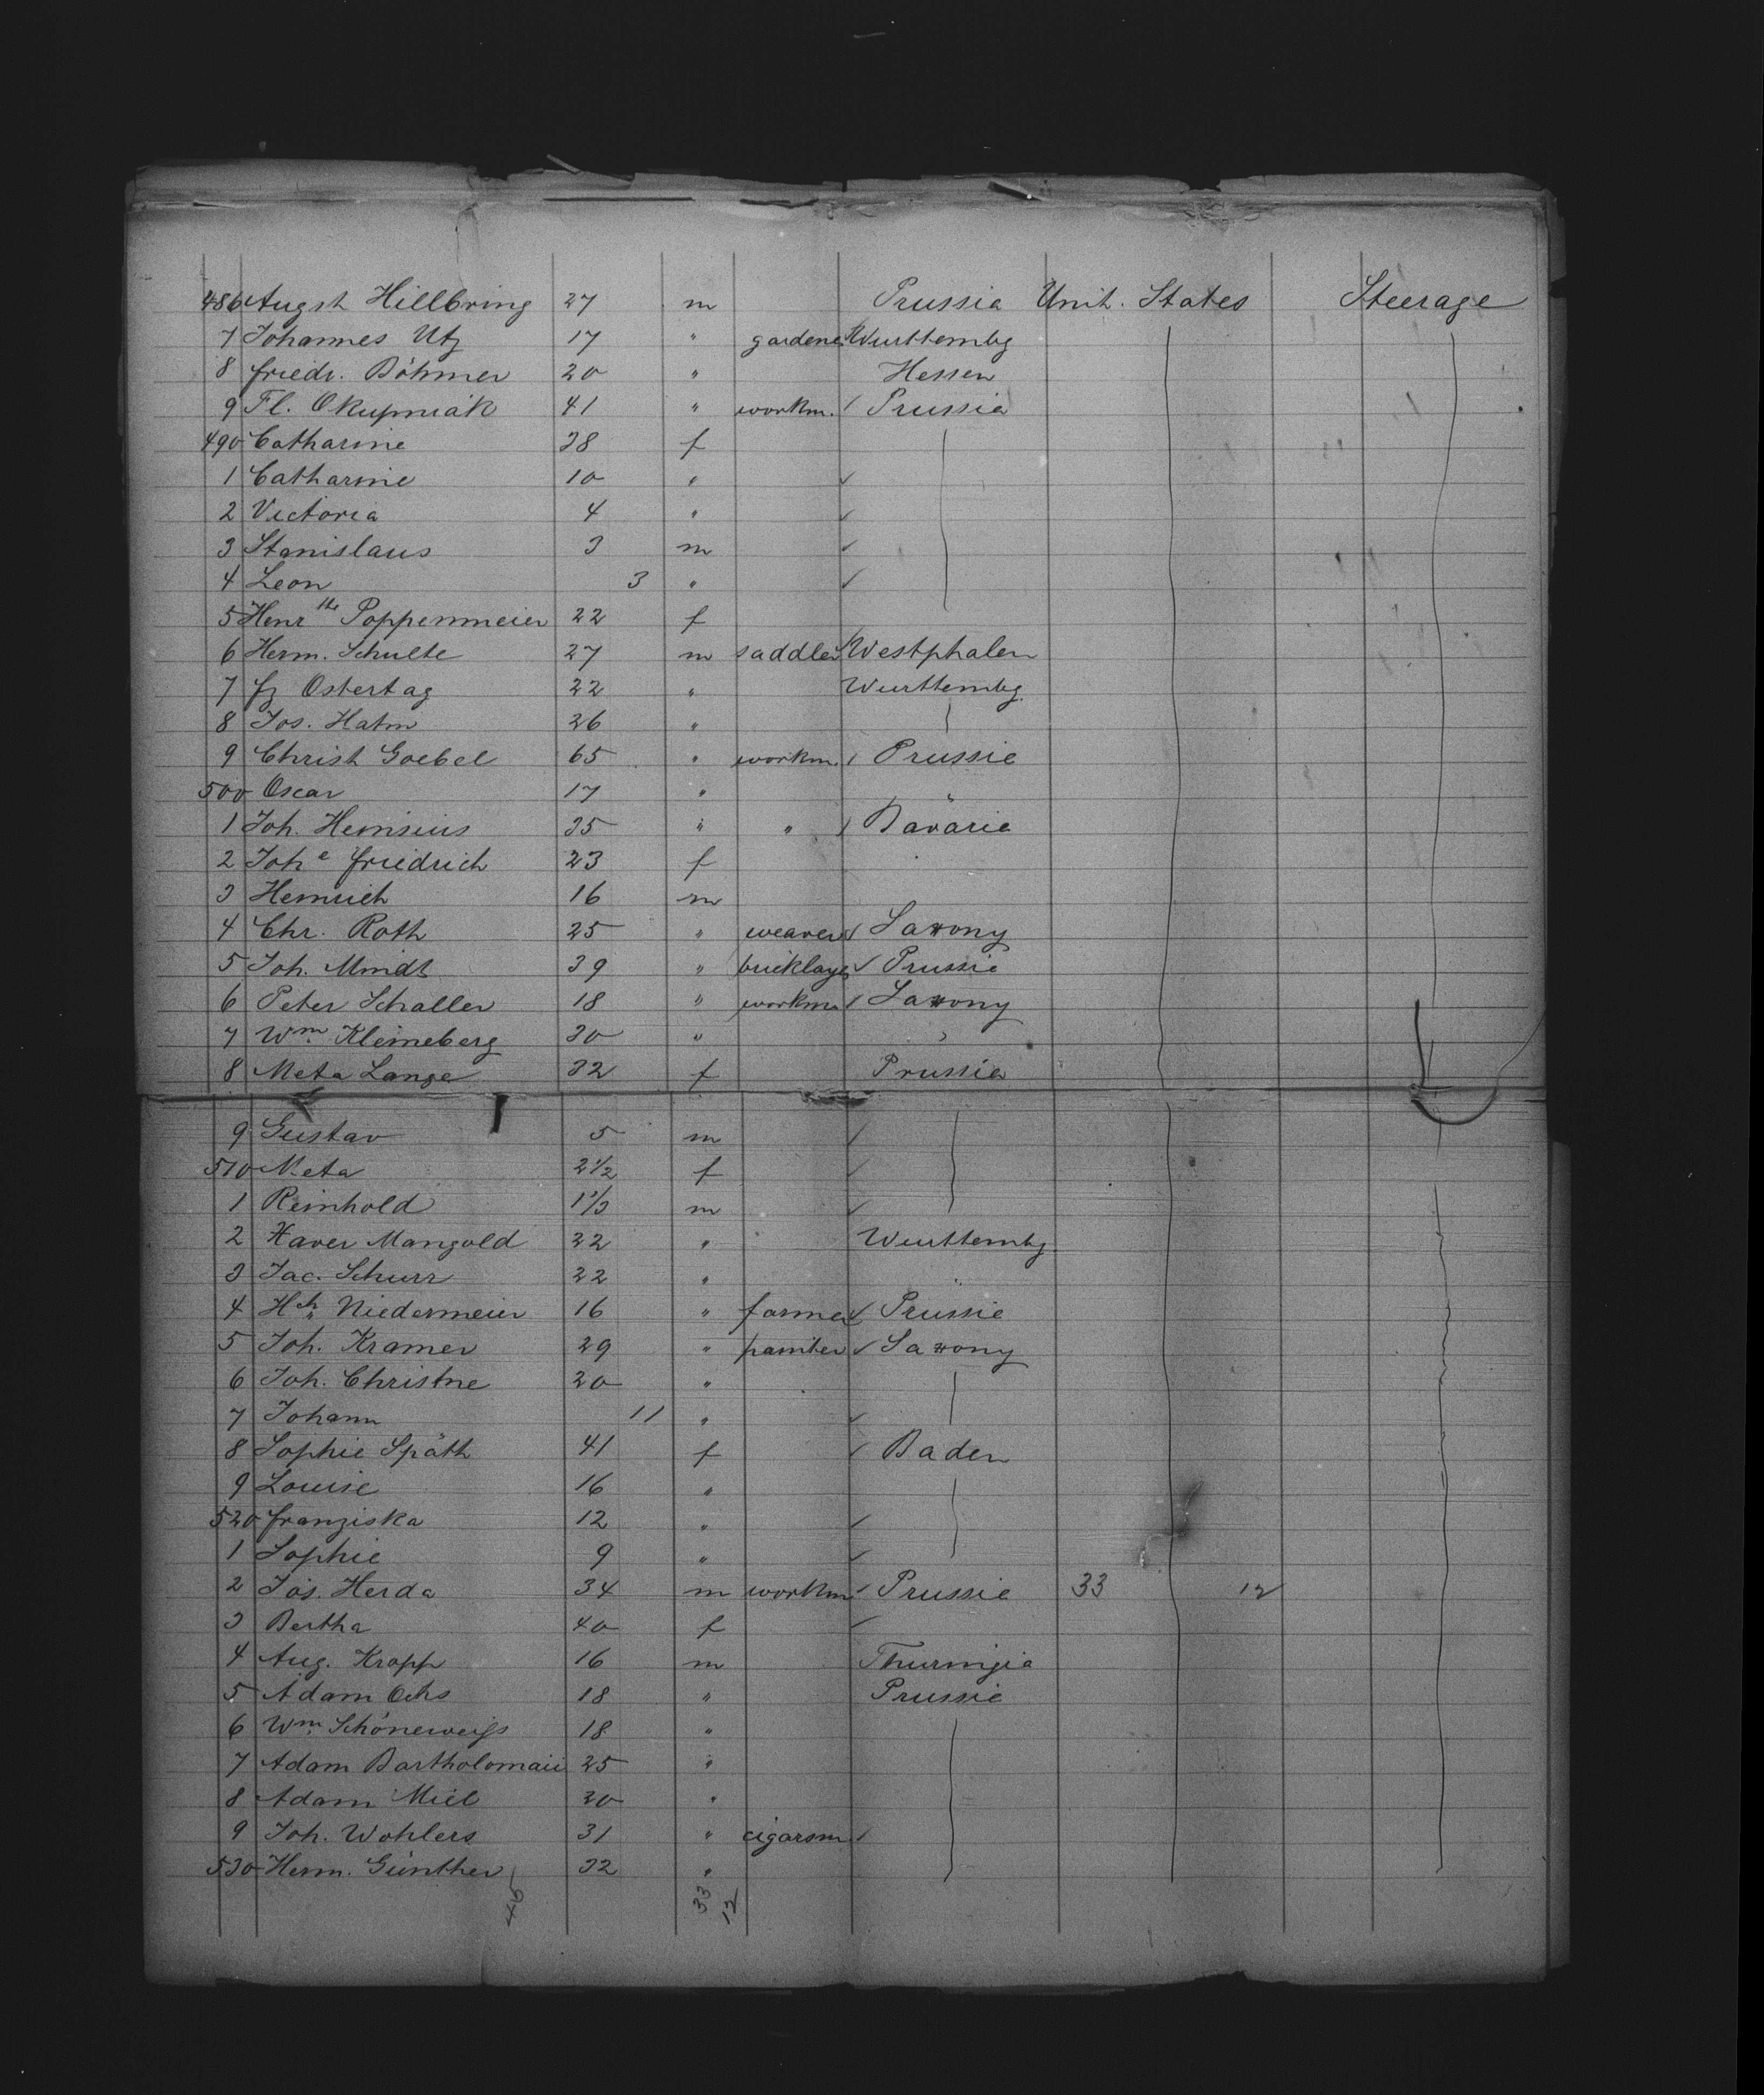 486 Augst Hillbring 27 m Prussia Unit. States Steerage
7 Johannes Utz 17 " gardener Wurttembg
8 Friedr. Böhmer 20 " Hessen
9 Fl. Okupniak 41 " workm. Prussia
490 Catharine 38 f
1 Catharine 10 "
2 Victoria 4 "
3 Stanislaus 3 m
4 Leon 3 "
5 Henr tte Poppenmeier 22 f
6 Herm. Schulte 27 m saddler Westphalen
7 Fz Ostertag 22 " Wurttembg.
8 Jos. Hahn 26 "
9 Christ Goebel 65 " workm. Prussia
500 Oscar 17 " "
1 Joh. Heinsius 35 " " Bavaria
2 Joh e Friedrich 23 f
3 Heinrich 16 m
4 Chr. Roth 25 " weaver Saxony
5 Joh. Mindt 39 " bricklayer Prussia
6 Peter Schaller 18 " workm. Saxony
7 Wm Kleineberg 30 " "
8 Meta Lange 32 f Prussia
9 Gustav 5 m
510 Meta 2½ f
1 Reinhold 1⅓ m
2 Xaver Mangold 22 " Wurttembg.
3 Jac. Schurr 22 " "
4 Hch Niedermeier 16 " farmer Prussia
5 Joh. Kramer 29 " painter Saxony
6 Joh. Christne 20 "
7 Johann 11 "
8 Sophie Späth 41 f Baden
9 Louise 16 "
520 Franziska 12 "
1 Sophie 9 "
2 Jos. Herda 34 m workm Prussia 33 12
3 Bertha 40 f
4 Aug. Kropp 16 m Thuringia
5 Adam Ochs 18 " Prussia
6 Wm Schöneweiss 18 "
7 Adam Bartholomaii 25 "
8 Adam Miel 20 "
9 Joh. Wohlers 31 " cigarsm.
530 Herm. Günther 32 "
45 33 12